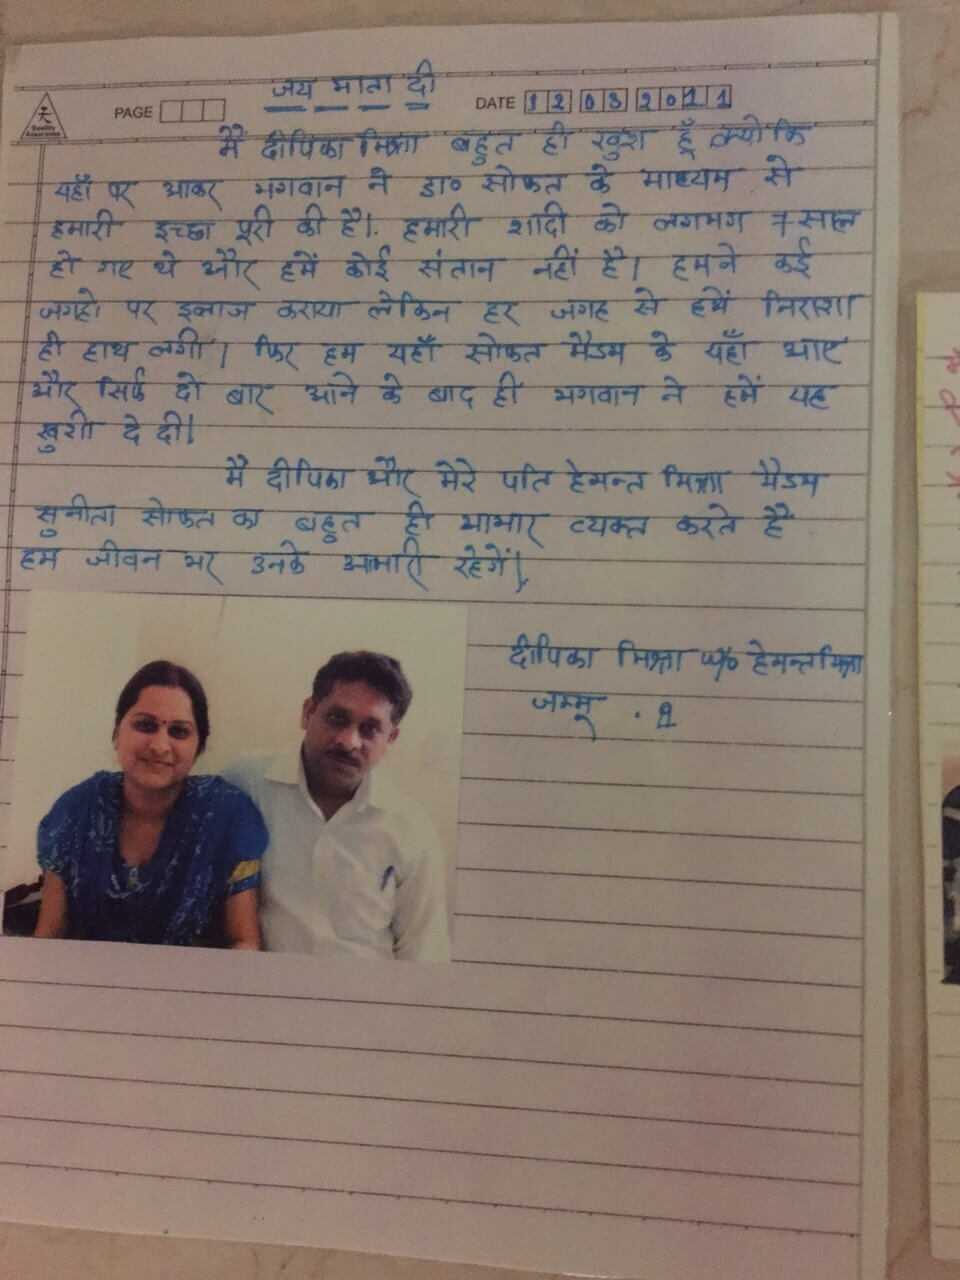 जय माता दी
PAGE
DATE 12 03 2011
Quality Assurance
मैं दीपिका मिश्रा बहुत ही खुश हूँ क्योकि
यहाँ पर आकर भगवान ने डा० सोफत के माध्यम से
हमारी इच्छा पूरी की है। हमारी शादी को लगभग 7 साल
हो गए थे और हमें कोई संतान नहीं है। हमने कई
जगहो पर इलाज कराया लेकिन हर जगह से हमें निराशा
ही हाथ लगी। फिर हम यहाँ सोफत मैडम के यहाँ आए
और सिर्फ दो बार आने के बाद ही भगवान ने हमें यह
खुशी दे दी।
मै दीपिका और मेरे पति हेमन्त मिश्रा मैडम
सुनीता सोफत का बहुत ही आभार व्यक्त करते हैं
हम जीवन भर उनके आभारी रहेगें।
दीपिका मिश्रा w/o हेमन्त मिश्रा
जम्मू .